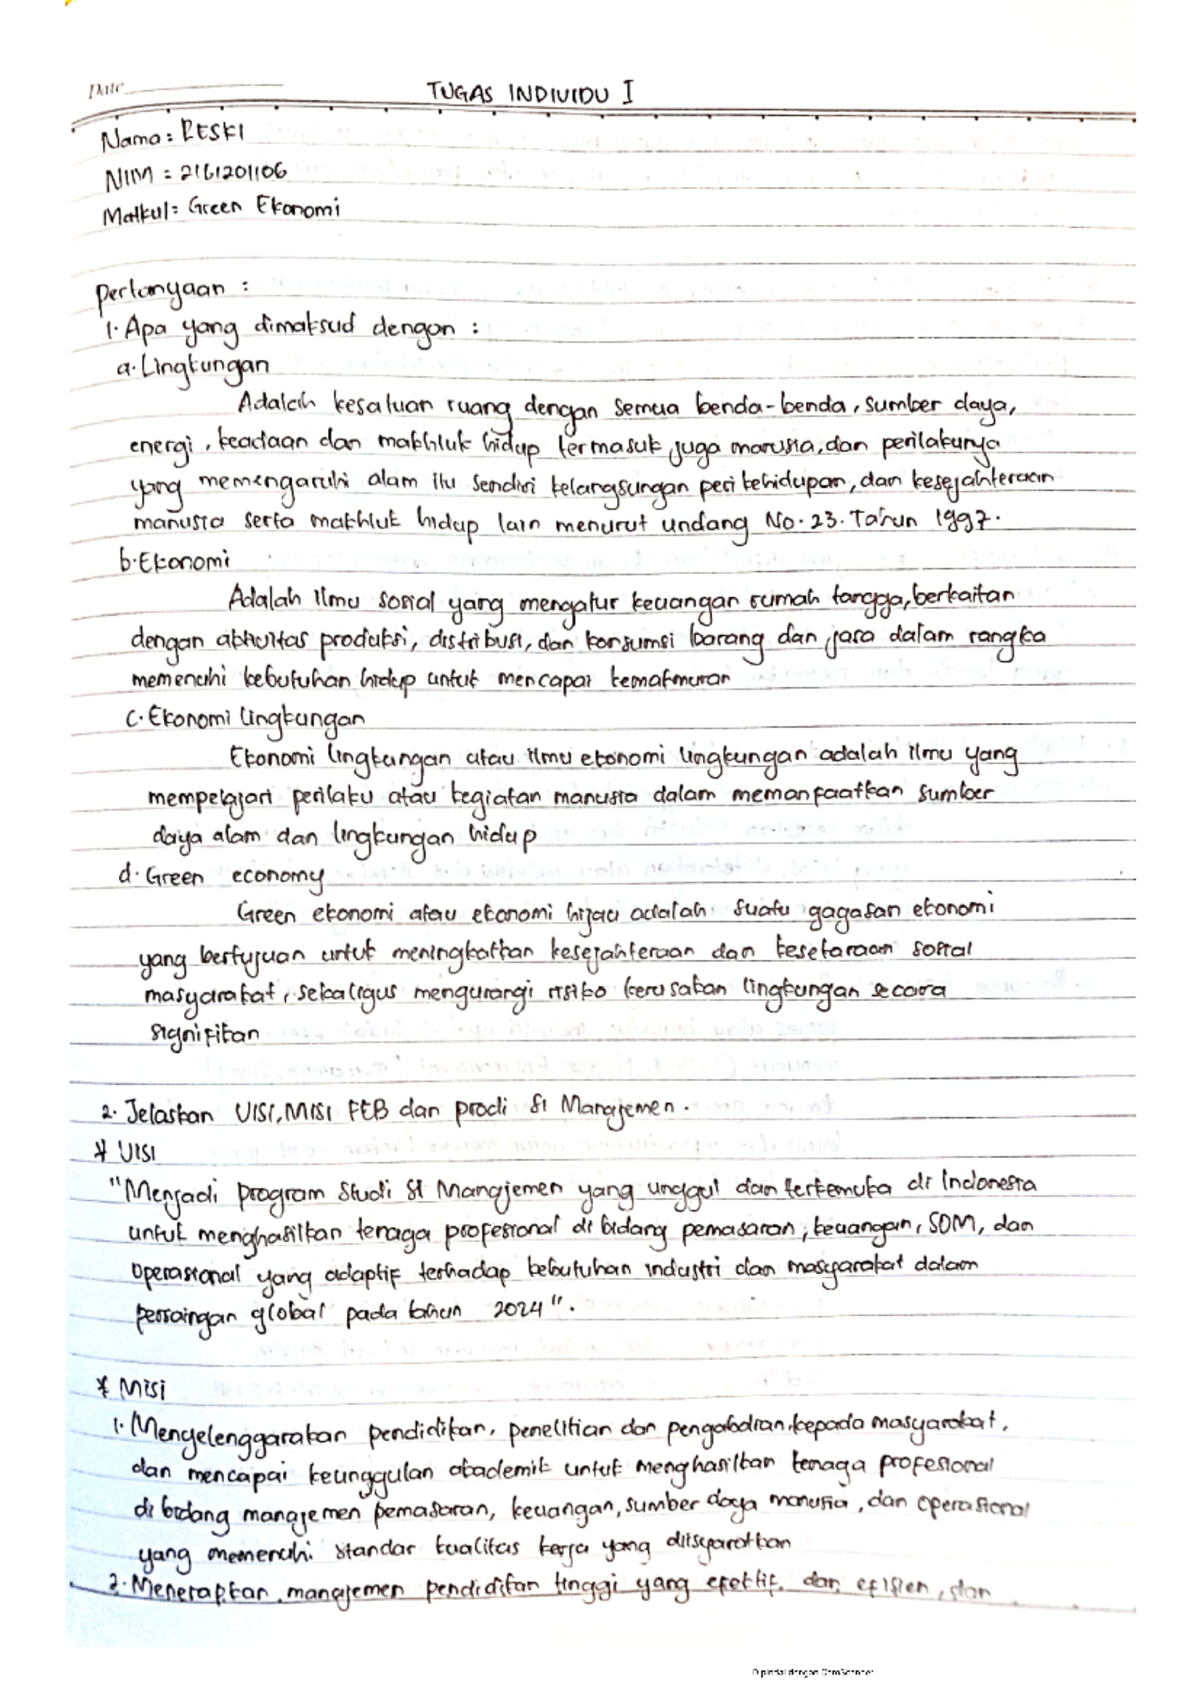 Date
TUGAS INDIVIDU I
Nama : RESKI
NIM = 2161201106
Matkul = Green Ekonomi
pertanyaan :
1. Apa yang dimaksud dengan :
a. Lingkungan
Adalah kesatuan ruang dengan semua benda-benda, sumber daya,
energi, keadaan dan makhluk hidup termasuk juga manusia, dan perilakunya
yang memengaruhi alam itu sendiri kelangsungan peri kehidupan, dan kesejahteraan
manusia serta makhluk hidup lain menurut undang No. 23. Tahun 1997.
b. Ekonomi
Adalah Ilmu sosial yang mengatur keuangan rumah tangga, berkaitan
dengan aktivitas produksi, distribusi, dan konsumsi barang dan jasa dalam rangka
memenuhi kebutuhan hidup untuk mencapai kemakmuran
c. Ekonomi lingkungan
Ekonomi lingkungan atau ilmu ekonomi lingkungan adalah ilmu yang
mempelajari perilaku atau kegiatan manusia dalam memanfaatkan sumber
daya alam dan lingkungan hidup
d. Green economy
Green ekonomi atau ekonomi hijau adalah suatu gagasan ekonomi
yang bertujuan untuk meningkatkan kesejahteraan dan kesetaraan sosial
masyarakat, sekaligus mengurangi risiko kerusakan lingkungan secara
signifikan
2. Jelaskan VISI, MISI FEB dan prodi S1 Manajemen.
* VISI
"Menjadi program studi S1 Manajemen yang unggul dan terkemuka di Indonesia
untuk menghasilkan tenaga profesional di bidang pemasaran, keuangan, SDM, dan
operasional yang adaptif terhadap kebutuhan industri dan masyarakat dalam
persaingan global pada tahun 2024".
* Misi
1. Menyelenggarakan pendidikan, penelitian dan pengabdian kepada masyarakat,
dan mencapai keunggulan akademik untuk menghasilkan tenaga profesional
di bidang manajemen pemasaran, keuangan, sumber daya manusia, dan operasional
yang memenuhi standar kualitas kerja yang diisyaratkan
2. Menerapkan manajemen pendidikan tinggi yang efektif, dan efisien, dan
Dipindai dengan CamScanner